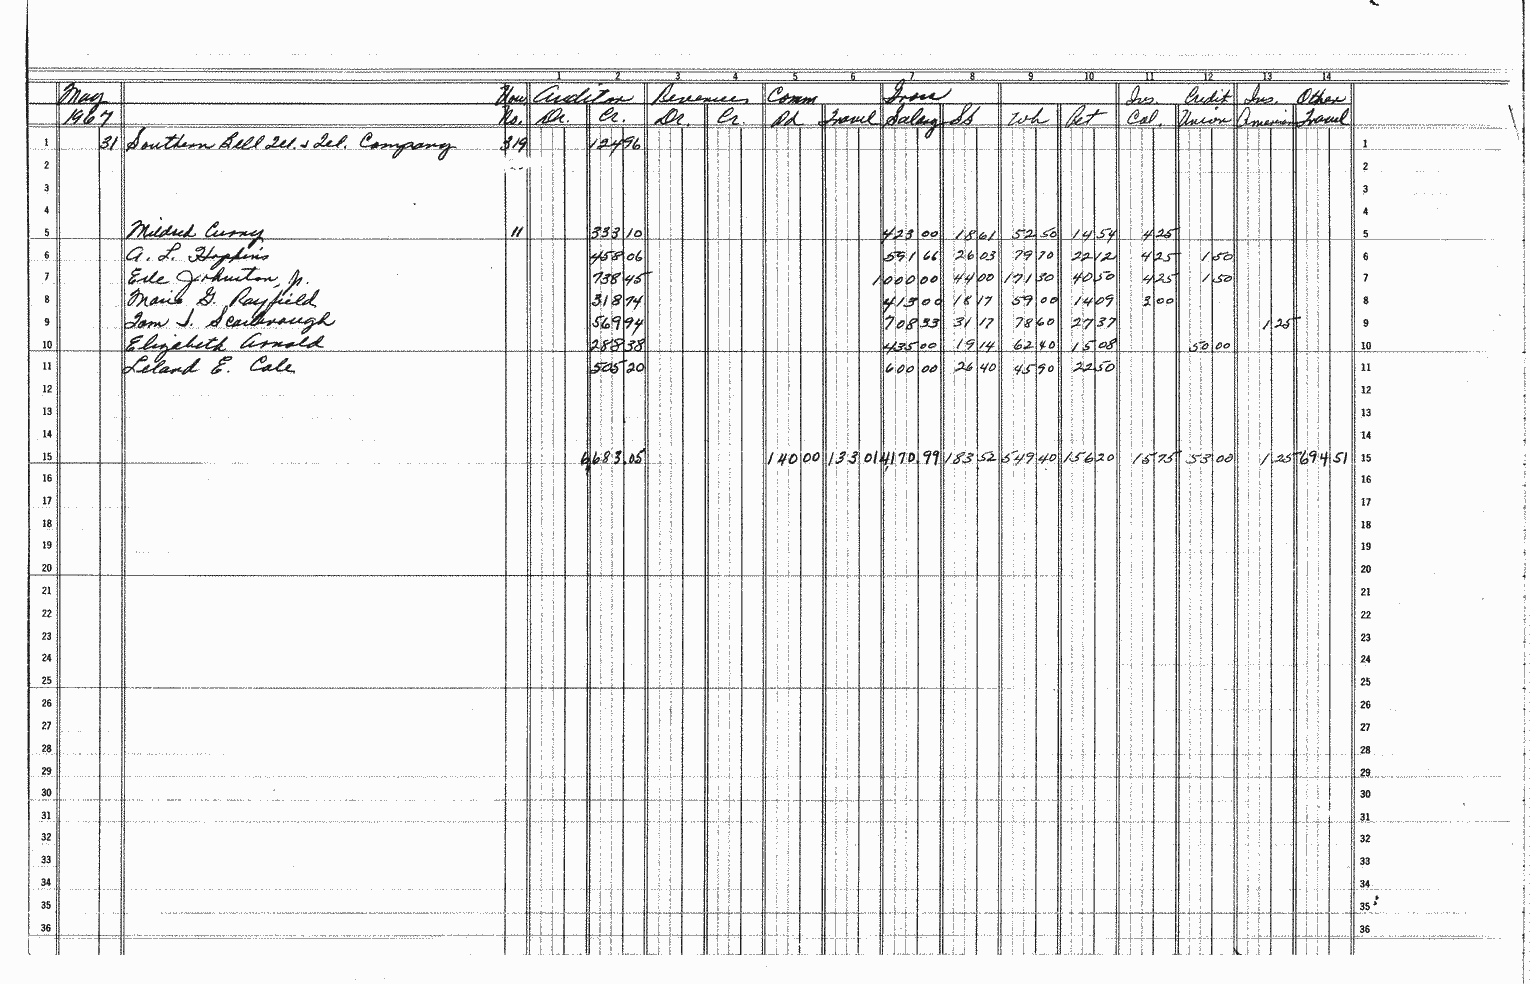 1 2 3 4 5 6 7 8 9 10 11 12 13 14
May Vou Auditor Revenues Comm Gross Ins. Credit Ins. Other
1967 No. Dr. Cr. Dr. Cr. Pd Travel Salary SS Wh Ret Cal. Union American Travel
1 31 Southern Bell Tel. & Tel. Company 319 124 96 1
2 2
3 3
4 4
5 Mildred Curry 11 333 10 423 00 18 61 52 50 14 54 4 25 5
6 A. L. Hopkins 458 06 591 66 26 03 79 70 22 12 4 25 1 50 6
7 Erle Johnston, Jr. 738 45 1000 00 44 00 171 30 40 50 4 25 1 50 7
8 Marie G. Rayfield 318 74 413 00 18 17 59 00 14 09 3 00 8
9 Tom J. Scarbrough 569 94 708 33 31 17 78 60 27 37 1 25 9
10 Elizabeth Arnold 288 38 435 00 19 14 62 40 15 08 50 00 10
11 Leland E. Cole 505 20 600 00 26 40 45 90 22 50 11
12 12
13 13
14 14
15 6,683.05 140 00 133 01 4,170.99 183 52 549 40 156 20 15 75 53 00 1 25 694 51 15
16 16
17 17
18 18
19 19
20 20
21 21
22 22
23 23
24 24
25 25
26 26
27 27
28 28
29 29
30 30
31 31
32 32
33 33
34 34
35 35
36 36